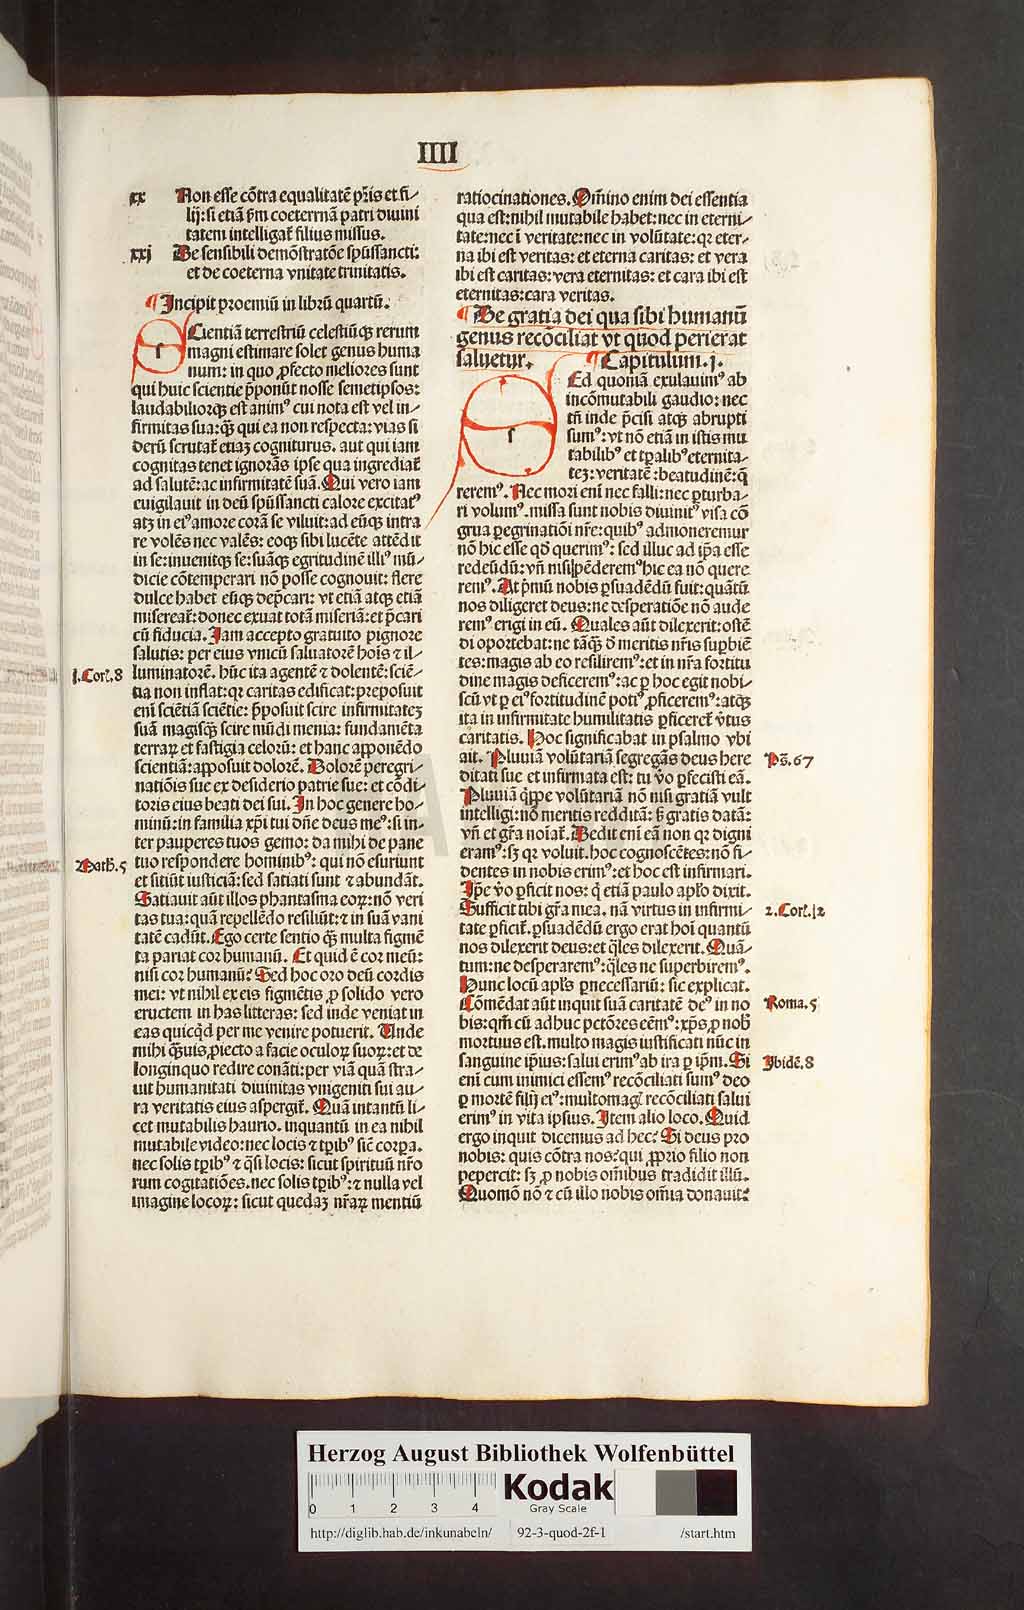 IIII
xx Non esse cõtra equalitatẽ pr̃is et fi⸗
lij: si etiã p̃m coeternã patri diuini
tatem intelligat̃ filius missus.
xxj De sensibili demõstratõe sp̃ussancti:
et de coeterna vnitate trinitatis.
¶ Incipit proemiũ in librũ quartũ.
SCientiã terrestriũ celestiũq; rerum
magni estimare solet genus huma
num: in quo ꝓfecto meliores sunt
qui huic scientie p̃ponũt nosse semetipsos:
laudabiliorq; est animꝰ cui nota est vel in⸗
firmitas sua: q̃ꝫ qui ea non respecta: vias si
derũ scrutat̃ etiaꝫ cogniturus. aut qui iam
cognitas tenet ignorãs ipse qua ingrediat̃
ad salutẽ: ac infirmitatẽ suã. Qui vero iam
euigilauit in deũ sp̃ussancti calore excitatꝰ
atꝫ in eiꝰ amore corã se viluit: ad eũq; intra
re volẽs nec valẽs: eoq; sibi lucẽte attẽdit
in se: inuenitq; se: suãq; egritudinẽ illiꝰ mũ⸗
dicie cõtemperari nõ posse cognouit: flere
dulce habet eũq; dep̃cari: vt etiã atq; etiã
misereat̃: donec exuat totã miseriã: et p̃cari
cũ fiducia. Iam accepto gratuito pignore
salutis: per eius vnicũ saluatorẽ hoĩs ⁊ il⸗
j. Cor̃. 8 luminatorẽ. hũc ita agentẽ ⁊ dolentẽ: sciẽ⸗
tia non inflat: qꝛ caritas edificat: preposuit
eni sciẽtiã sciẽtie: p̃posuit scire infirmitateꝫ
suã magisq; scire mũdi menia: fundamẽta
terraꝝ et fastigia celorũ: et hanc apponẽdo
scientiã: apposuit dolorẽ. Dolorẽ peregri⸗
natiõis sue ex desiderio patrie sue: et cõdi⸗
toris eius beati dei sui. In hoc genere ho⸗
minũ: in familia xp̃i tui dñe deus meꝰ: si in⸗
ter pauperes tuos gemo: da mihi de pane
Math̃. 5 tuo respondere hominibꝰ: qui nõ esuriunt
et sitiũt iusticiã: sed satiati sunt ⁊ abundãt.
Satiauit aũt illos phantasma eoꝝ: nõ veri
tas tua: quã repellẽdo resiliũt: ⁊ in suã vani
tatẽ cadũt. Ego certe sentio q̃ꝫ multa figmẽ
ta pariat cor humanũ. Et quid ẽ cor meũ:
nisi cor humanũ? Sed hoc oro deũ cordis
mei: vt nihil ex eis figmẽtis ꝓ solido vero
eructem in has litteras: sed inde veniat in
eas quicq̃d per me venire potuerit. Vnde
mihi q̃ꝫuis ꝓiecto a facie oculoꝝ suoꝝ: et de
longinquo redire conãti: per viã quã stra⸗
uit humanitati diuinitas vnigeniti sui au⸗
ra veritatis eius aspergit̃. Quã intantũ li⸗
cet mutabilis haurio. inquantũ in ea nihil
mutabile video: nec locis ⁊ tp̃ibꝰ sic̃ corpa.
nec solis tp̃ibꝰ ⁊ q̃si locis: sicut spirituũ nr̃o
rum cogitatiões. nec solis tp̃ibꝰ: ⁊ nulla vel
imagine locoꝝ: sicut quedaꝫ nr̃aꝝ mentiũ
ratiocinationes. Om̃ino enim dei essentia
qua est: nihil mutabile habet: nec in eterni⸗
tate: nec ĩ veritate: nec in volũtate: qꝛ eter⸗
na ibi est veritas: et eterna caritas: et vera
ibi est caritas: vera eternitas: et cara ibi est
eternitas: cara veritas.
¶ De gratia dei qua sibi humanũ
genus recõciliat vt quod perierat
saluetur. ¶ Capitulum. j.
SEd quoniã exulauimꝰ ab
incõmutabili gaudio: nec
tñ inde p̃cisi atq; abrupti
sumꝰ: vt nõ etiã in istis mu
tabilibꝰ et tp̃alibꝰ eternita⸗
teꝫ: veritatẽ: beatudinẽ: q̃
reremꝰ. Nec mori eni nec falli: nec ꝑturba⸗
ri volumꝰ. missa sunt nobis diuinitꝰ visa cõ
grua ꝑegrinatiõi nr̃e: quibꝰ admoneremur
nõ hic esse qõ querimꝰ: sed illuc ad ip̃a esse
redeũdũ: vñ nisi pẽderemꝰ hic ea nõ quere
remꝰ. At p̃mũ nobis ꝑsuadẽdũ fuit: quãtũ
nos diligeret deus: ne desperatiõe nõ aude
remꝰ erigi in eũ. Quales aũt dilexerit: ostẽ
di oportebat: ne tãq; õ meritis nr̃is supbiẽ
tes: magis ab eo resiliremꝰ: et in nr̃a fortitu
dine magis deficeremꝰ: ac ꝑ hoc egit nobi⸗
scũ vt ꝑ eiꝰ fortitudinẽ potiꝰ ꝓficeremꝰ: atq;
ita in infirmitate humilitatis ꝑficeret̃ v̾tus
caritatis. Hoc significabat in psalmo vbi
ait. Pluuiã volũtariã segregãs deus here Ps̃. 67
ditati sue et infirmata est: tu v̾o ꝑfecisti eã.
Pluuiã q̃ppe volũtariã nõ nisi gratiã vult
intelligi: nõ meritis redditã: sꝫ gratis datã:
vñ et gr̃a noiat̃. Dedit eni eã non qꝛ digni
eramꝰ: sꝫ qꝛ voluit. hoc cognoscẽtes: nõ fi⸗
dentes in nobis erimꝰ: et hoc est infirmari.
Ip̃e v̾o ꝑficit nos: q̃ etiã paulo apl̃o dixit.
Sufficit tibi gr̃a mea. nã virtus in infirmi⸗ 2. Cor̃. 12
tate ꝑficit̃. ꝑsuadẽdũ ergo erat hoĩ quantũ
nos dilexerit deus: et q̃les dilexerit. Quã⸗
tum: ne desperaremꝰ: q̃les ne superbiremꝰ.
Hunc locũ apl̃s ꝑnecessariũ: sic explicat.
Cõmẽdat aũt inquit suã caritatẽ deꝰ in no Roma. 5
bis: qm̃ cũ adhuc pctõres eẽmꝰ: xp̃s ꝓ nobꝭ
mortuus est. multo magis iustificati nũc in
sanguine ip̃ius: salui erimꝰ ab ira ꝑ ip̃m. Si Ibidẽ. 8
eni cum inimici essemꝰ recõciliati sumꝰ deo
ꝑ mortẽ filij eiꝰ: multomagꝭ recõciliati salui
erimꝰ in vita ipsius. Item alio loco. Quid
ergo inquit dicemus ad hec? Si deus pro
nobis: quis cõtra nos? qui ꝓprio filio non
pepercit: sꝫ ꝓ nobis om̃ibus tradidit illũ.
Quomõ nõ ⁊ cũ illo nobis om̃ia donauit?
Herzog August Bibliothek Wolfenbüttel
0 1 2 3 4
Kodak
Gray Scale
http://diglib.hab.de/inkunabeln/ 92-3-quod-2f-1 /start.htm